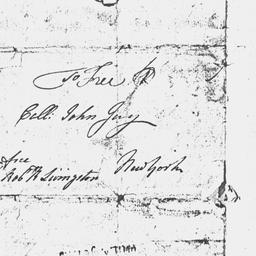 To Free
Coll: John Jay
New York
free
Robt R Livingston